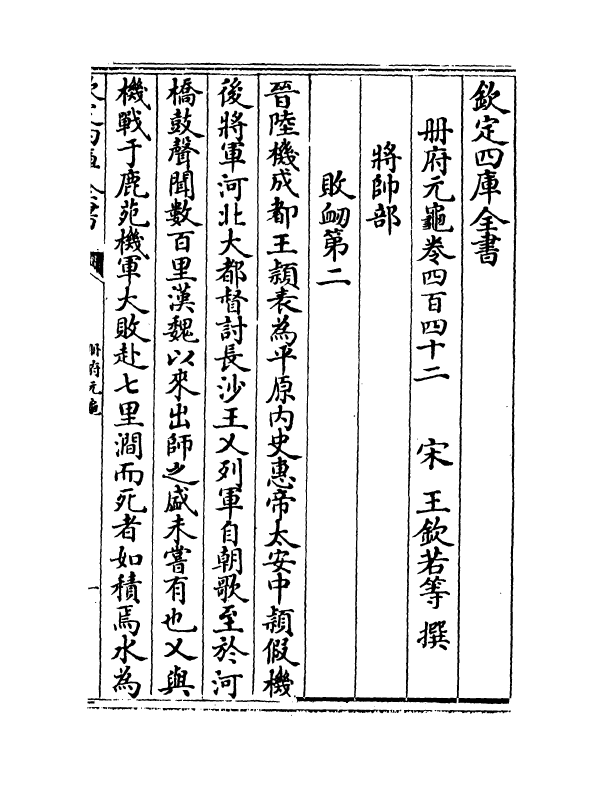 欽定四庫全書
册府元龜卷四百四十二 宋 王欽若等 撰
將帥部
敗衂第二
晉陸機成都王穎表為平原内史惠帝太安中穎假機
後將軍河北大都督討長沙王乂列軍自朝歌至於河
橋鼓聲聞數百里漢魏以來出師之盛未嘗有也乂與
機戰于鹿苑機軍大敗赴七里澗而死者如積焉水為
册府元龜
一